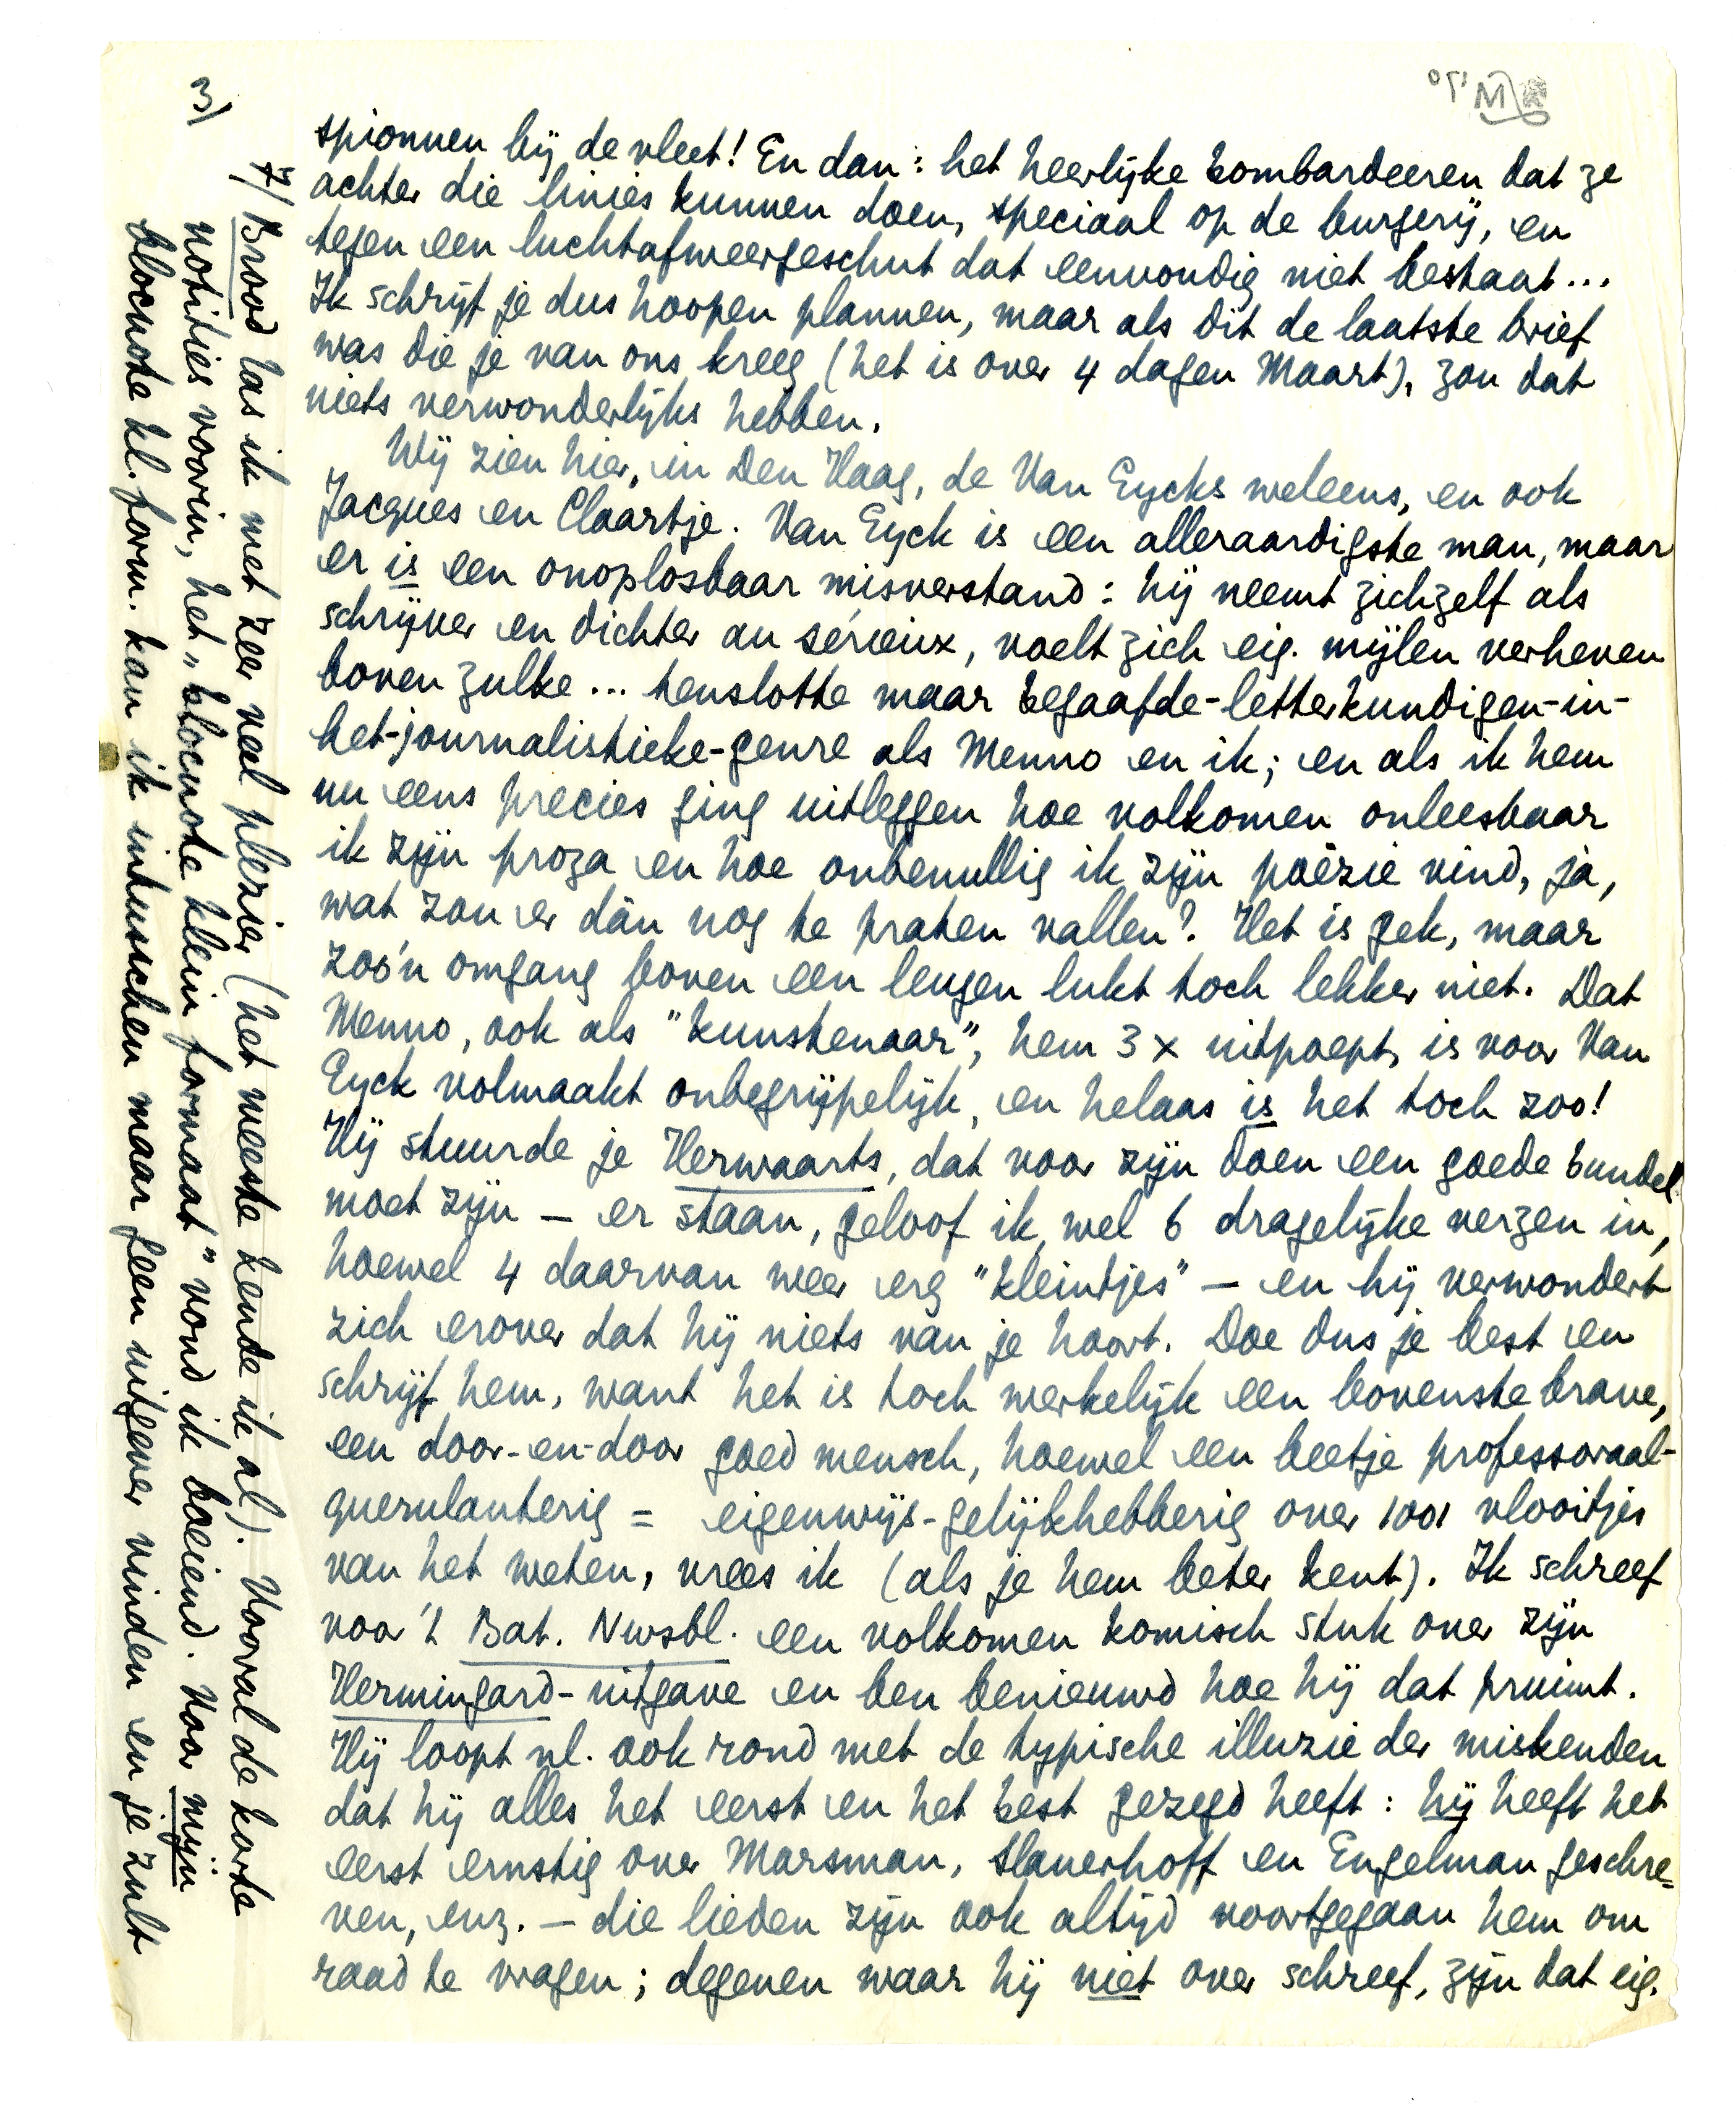 3/
spionnen bij de vleet! En dan: het heerlijke bombardeeren dat ze
achter die linies kunnen doen, speciaal op de burgerij, en
tegen een luchtafweergeschut dat eenvoudig niet bestaat...
Ik schrijf je dus hoopen plannen, maar als dit de laatste brief
was die je van ons kreeg (het is over 4 dagen Maart), zou dat
niets verwonderlijks hebben.
Wij zien hier, in Den Haag, de Van Eycks weleens, en ook
Jacques en Claartje. Van Eyck is een alleraardigste man, maar
er is een onoplosbaar misverstand: hij neemt zichzelf als
schrijver en dichter au sérieux, voelt zich eig. mijlen verheven
boven zulke... tenslotte maar begaafde-letterkundigen-in-
het-journalistieke-genre als Menno en ik; en als ik hem
nu eens precies ging uitleggen hoe volkomen onleesbaar
ik zijn proza en hoe onbenullig ik zijn poëzie vind, ja,
wat zou er dàn nog te praten vallen? Het is gek, maar
zoo'n omgang boven een leugen lukt toch lekker niet. Dat
Menno, ook als "kunstenaar", hem 3 x uitpoept, is voor Van
Eyck volmaakt onbegrijpelijk, en helaas is het toch zoo!
Hij stuurde je Herwaarts, dat voor zijn doen een goede bundel
moet zijn — er staan, geloof ik, wel 6 dragelijke verzen in,
hoewel 4 daarvan weer erg "kleintjes" — en hij verwondert
zich erover dat hij niets van je hoort. Doe dus je best en
schrijf hem, want het is toch werkelijk een bovenste brave,
een door-en-door goed mensch, hoewel een beetje professoraal-
querulanterig = eigenwijs-gelijkhebberig over 1001 vlooitjes
van het weten, vrees ik (als je hem beter kent). Ik schreef
voor 't Bat. Nwsbl. een volkomen komisch stuk over zijn
Hermingard-uitgave en ben benieuwd hoe hij dat pruimt.
Hij loopt nl. ook rond met de typische illuzie der miskenden
dat hij alles het eerst en het best gezegd heeft: hij heeft het
eerst ernstig over Marsman, Slauerhoff en Engelman geschre=
ven, enz. — die lieden zijn ook altijd voortgegaan hem om
raad te vragen; degenen waar hij niet over schreef, zijn dat eig.
7/ Brood las ik met zeer veel plezier (het meeste kende ik al). Vooral de korte
notities voorin, het "blocnote klein formaat" vond ik boeiend. Voor mijn
blocnote kl. form. kan ik intusschen maar geen uitgever vinden en je zult